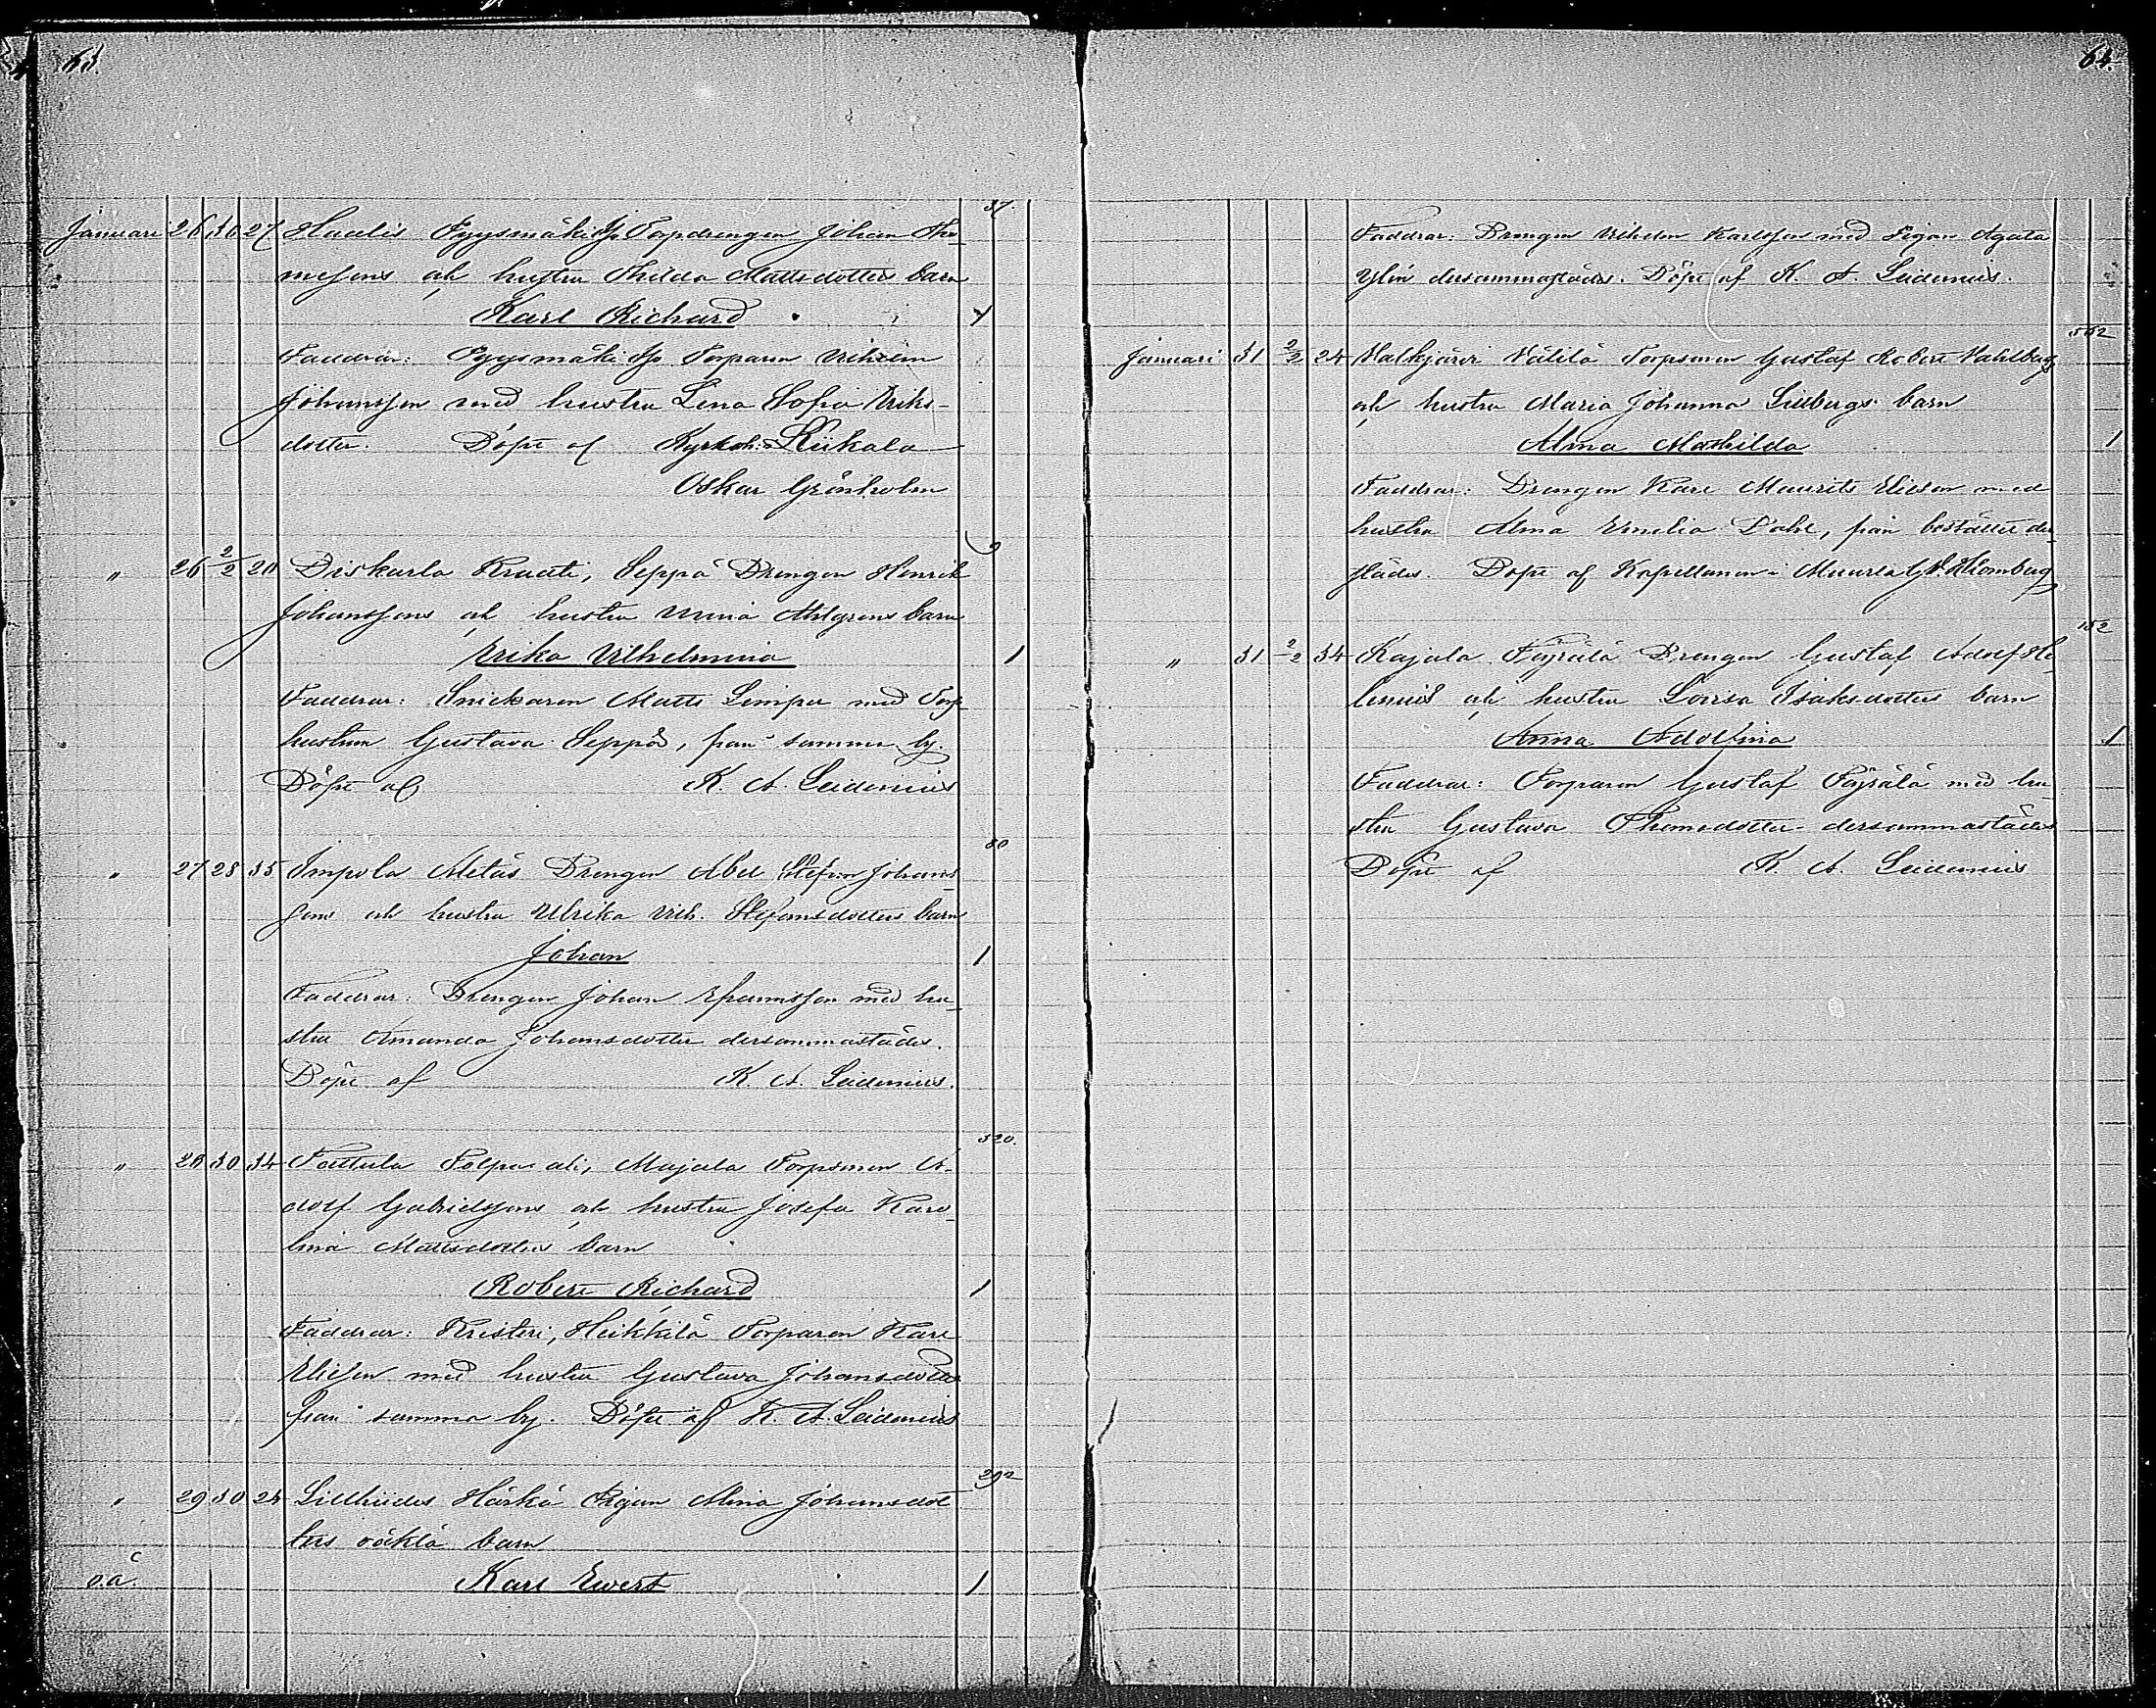 63.
37.
Januari 26 30 27 Haalis Pyysmäki Torpdrengen Johan Tho-
mesons och hustru Hilda Mattsdotters barn
Karl Richard 1
Faddrar: Pyysmäki Torparen Vilhelm
Johansson med hustru Lena Sofia Eriks-
dotter. Döpt af Kyrkoh: i Kiikala
Oskar Grönholm
9
" 26 2/2 20 Diskarla Knaati, Seppä Drengen Henrik
Johanssons och hustru Miina Ahlgrens barn
Erika Vilhelmina 1
Faddrar: Snickaren Matts Limper med Torp-
hustrun Gustava Seppä, från samma by.
Döpt af K. A. Leidenius
80
" 27 28 35 Inpola Aletás Drengen Abel Stefan Johans-
sons och hustru Ulrika Vilh. Stefansdotters barn
Johan 1
Faddrar: Drengen Johan Efraimsson med hu-
stru Amanda Johansdotter dersammastädes.
Döpt af K. A. Leidenius.
320.
" 28 30 34 Tattula Tolpas ali, Majala Torpsonen A-
dolf Gabrielssons och hustru Josefa Karo-
lina Mattsdotters barn
Robert Richard 1
Faddrar: Kristeri, Heikkilä Torparen Karl
Eliesen med hustru Gustava Johansdotter
från samma by. Döpt af K. A. Leidenius
292
" 29 30 24 Lillhiides Härkä Pigan Alma Johansdot-
ters oäkta barn
o.ä. Karl Evert 1
64.
Faddrar: Drengen Vilhelm Karlsson med Pigan Agata
Ylén dersammastädes. Döpt af K. A. Leidenius.
552
Januari 31 2/2 24 Valkjärvi Välilä Torpsonen Gustaf Robert Vahlberg
och hustru Maria Johanna Lillbergs barn
Alma Mathilda 1
Faddrar: Drengen Karl Maurits Elieson med
hustru Alma Emelia Dahl, från bostället der-
städes. Döpt af Kapellanen i Muurla G. V. Blomberg
152
" 31 2/2 34 Kajala Töyrälä Drengen Gustaf Adolf He-
lenius och hustru Lovisa Isaksdotters barn
Anna Adolfina 1
Faddrar: Torparen Gustaf Töyrälä med hu-
stru Gustava Thomsdotter dersammastädes
Döpt af K. A. Leidenius